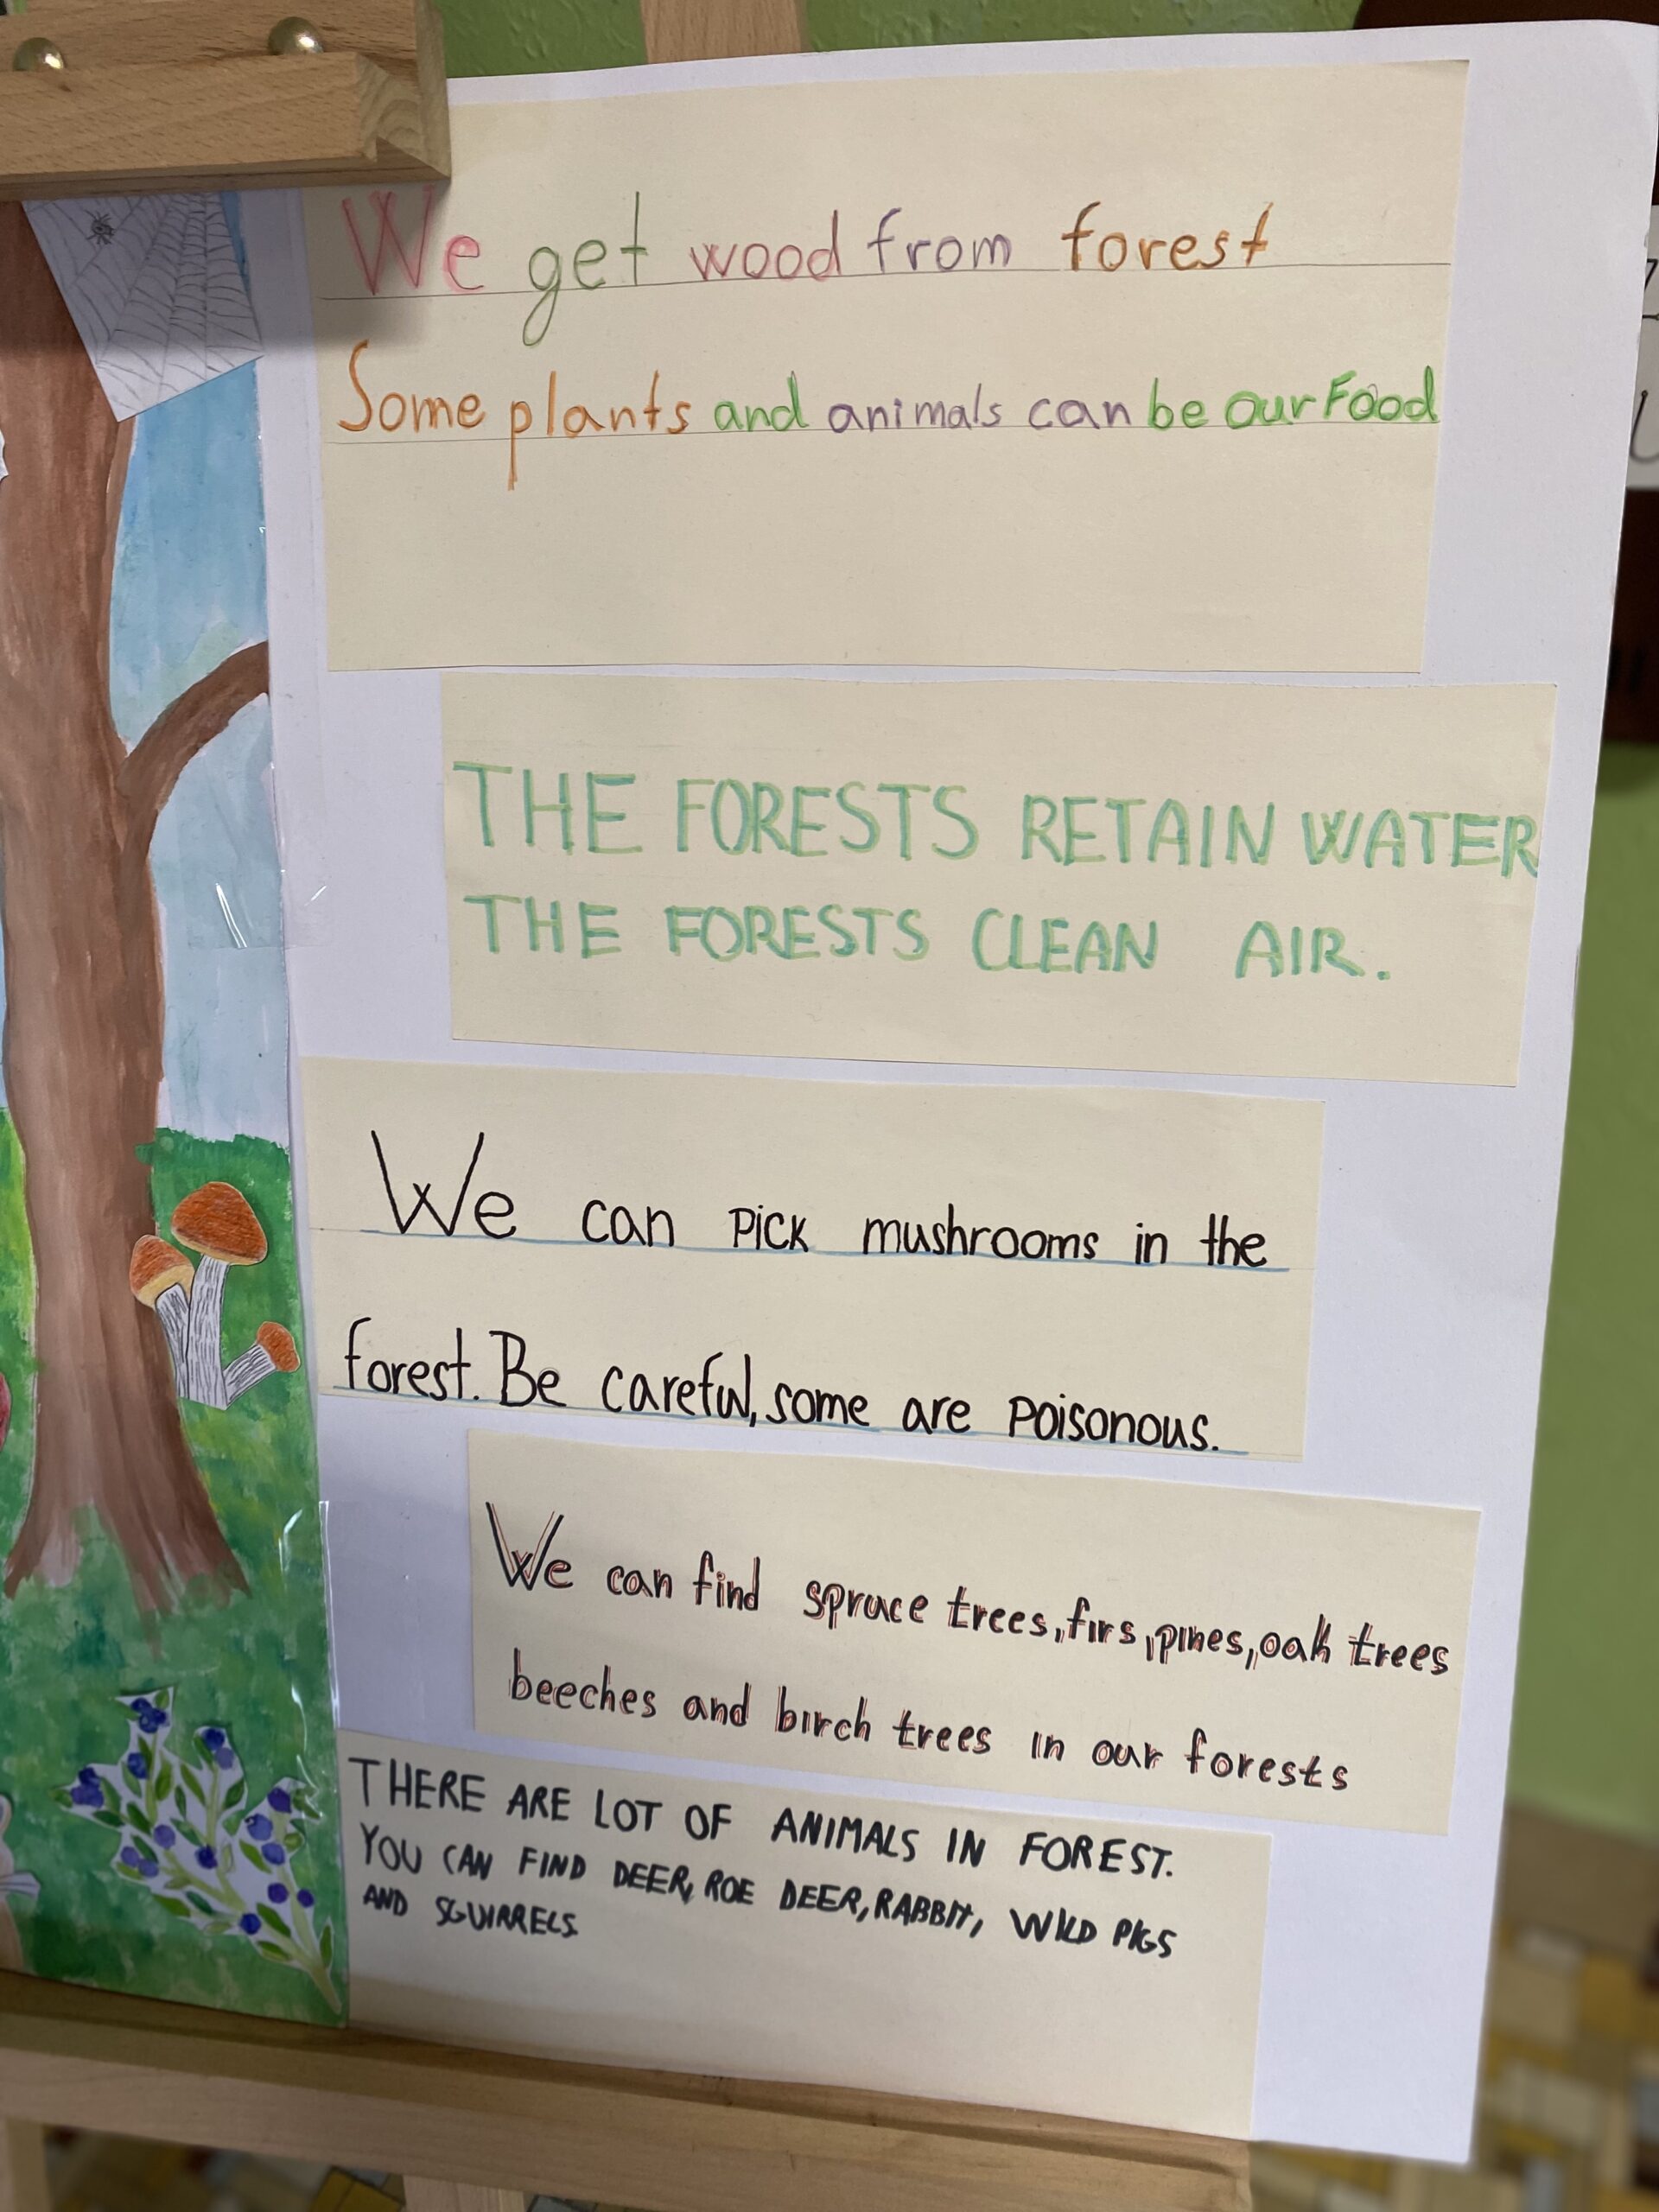 We get wood from forest
Some plants and animals can be our Food
THE FORESTS RETAIN WATER
THE FORESTS CLEAN AIR.
We can pick mushrooms in the
forest. Be careful, some are poisonous.
We can find spruce trees, firs, pines, oak trees
beeches and birch trees in our forests
THERE ARE LOT OF ANIMALS IN FOREST.
YOU CAN FIND DEER, ROE DEER, RABBIT, WILD PIGS
AND SGUIRRELS